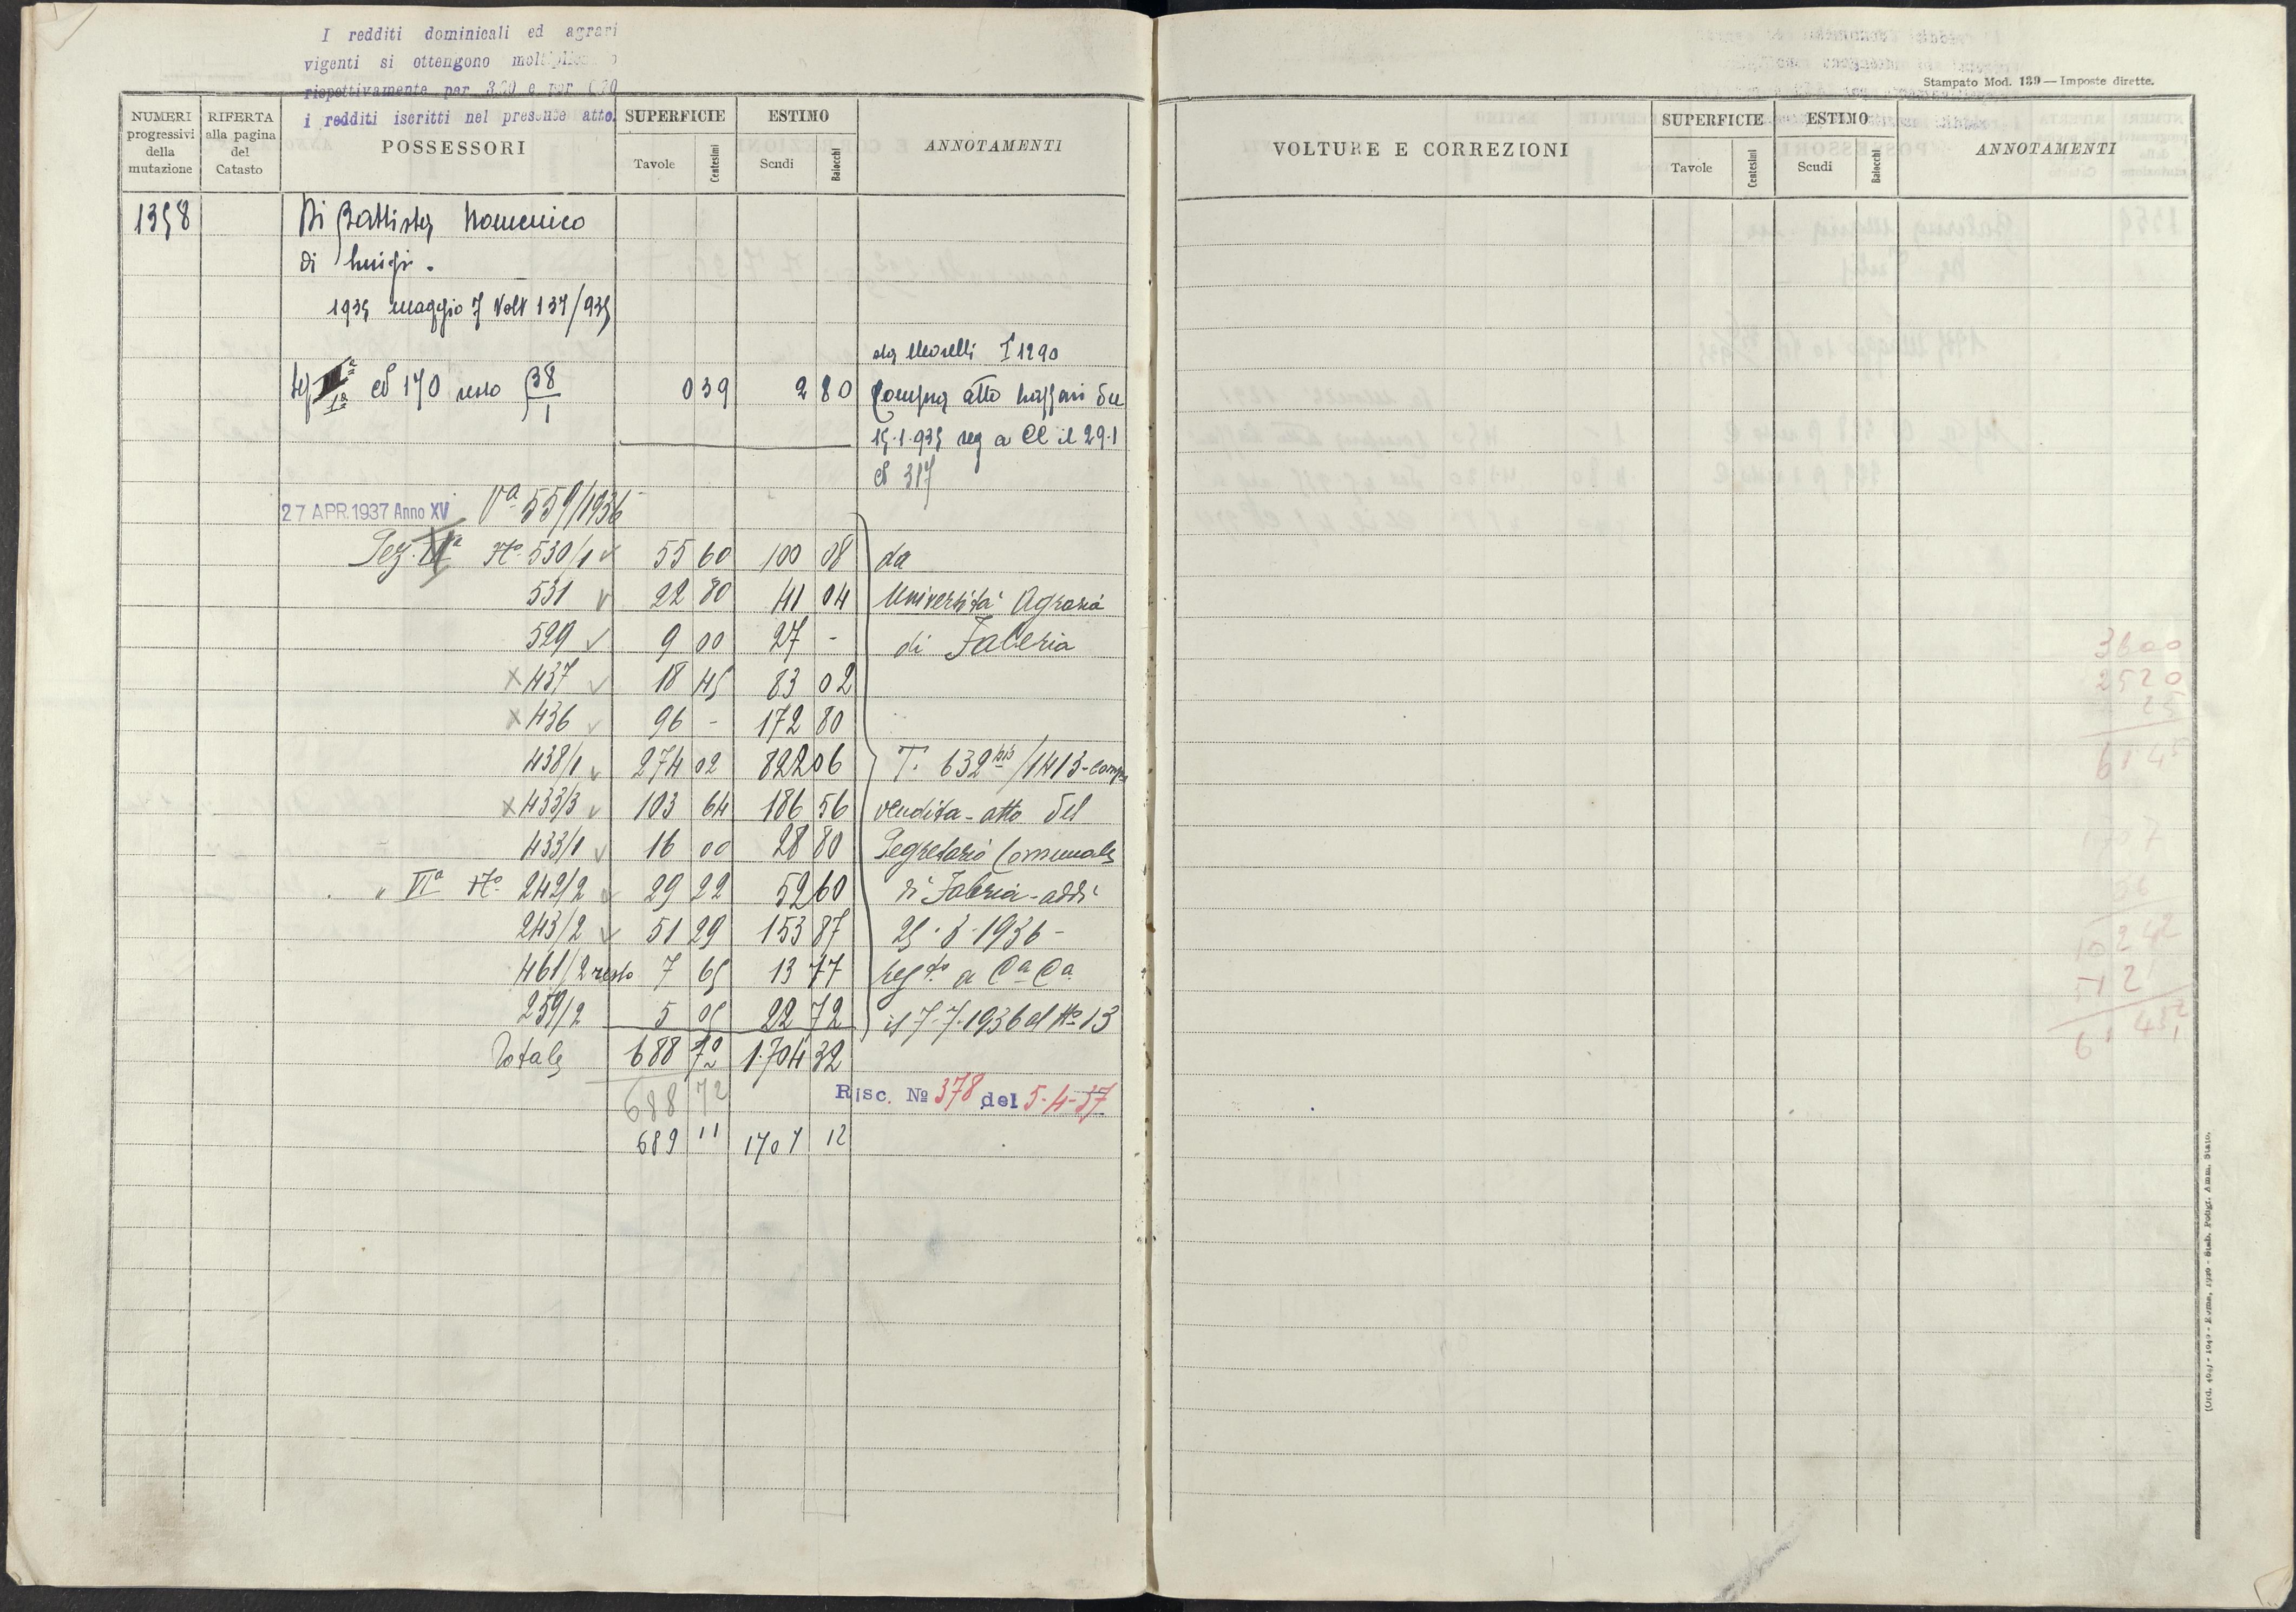 I redditi dominicali ed agrari
vigenti si ottengono
rispettivamente per 3.20 e per
i redditi iscritti nel presente atto.
NUMERI progressivi della mutazione
RIFERTA alla pagina del Catasto
POSSESSORI
SUPERFICIE
Tavole Centesimi
ESTIMO
Scudi Baiocchi
ANNOTAMENTI
1358 Di Battista Domenico
di Luigi.
1935 maggio 7 Volt 137/935
da Morelli I 1290
Iª al 170 resto 38/1 0 39 2 80 Compra atto
15.1.935 reg a CC il 29.1
al 317
27 APR. 1937 Anno XV Vª 559/1936
Sez. Nº 530/1 55 60 100 08 da
531 22 80 41 04 Università Agraria
529 9 00 27 - di Faleria
x 437 18 45 83 02
x 436 96 - 172 80
438/1 274 02 822 06 T. 632 bis/1413 - compra
x 433/3 103 64 186 56 vendita - atto del
433/1 16 00 28 80 Segretario Comunale
" VIª Nº 242/2 29 22 52 60 di Faleria - addì
243/2 51 29 153 87 25.3.1936 -
461/2 resto 7 65 13 77 regto a Cª Cª
259/2 5 05 22 72 il 7.7.1936 al Nº 13
Totale 688 72 1.704 32
688 72 Risc. Nº 378 del 5-4-37
689 11 1707 12
Stampato Mod. 139 — Imposte dirette.
VOLTURE E CORREZIONI
SUPERFICIE
Tavole Centesimi
ESTIMO
Scudi Baiocchi
ANNOTAMENTI
3600
2520
25
6145
1707
36
10242
5121